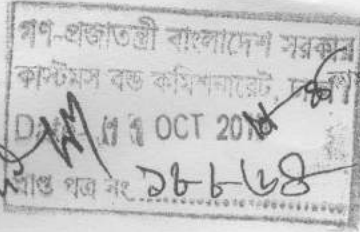 গণ-প্রজাতন্ত্রী বাংলাদেশ সরকার
কাস্টমস বন্ড কমিশনারেট, ঢাকা
11 OCT 201
প্রাপ্ত পত্র নং ১৮৮৬৪